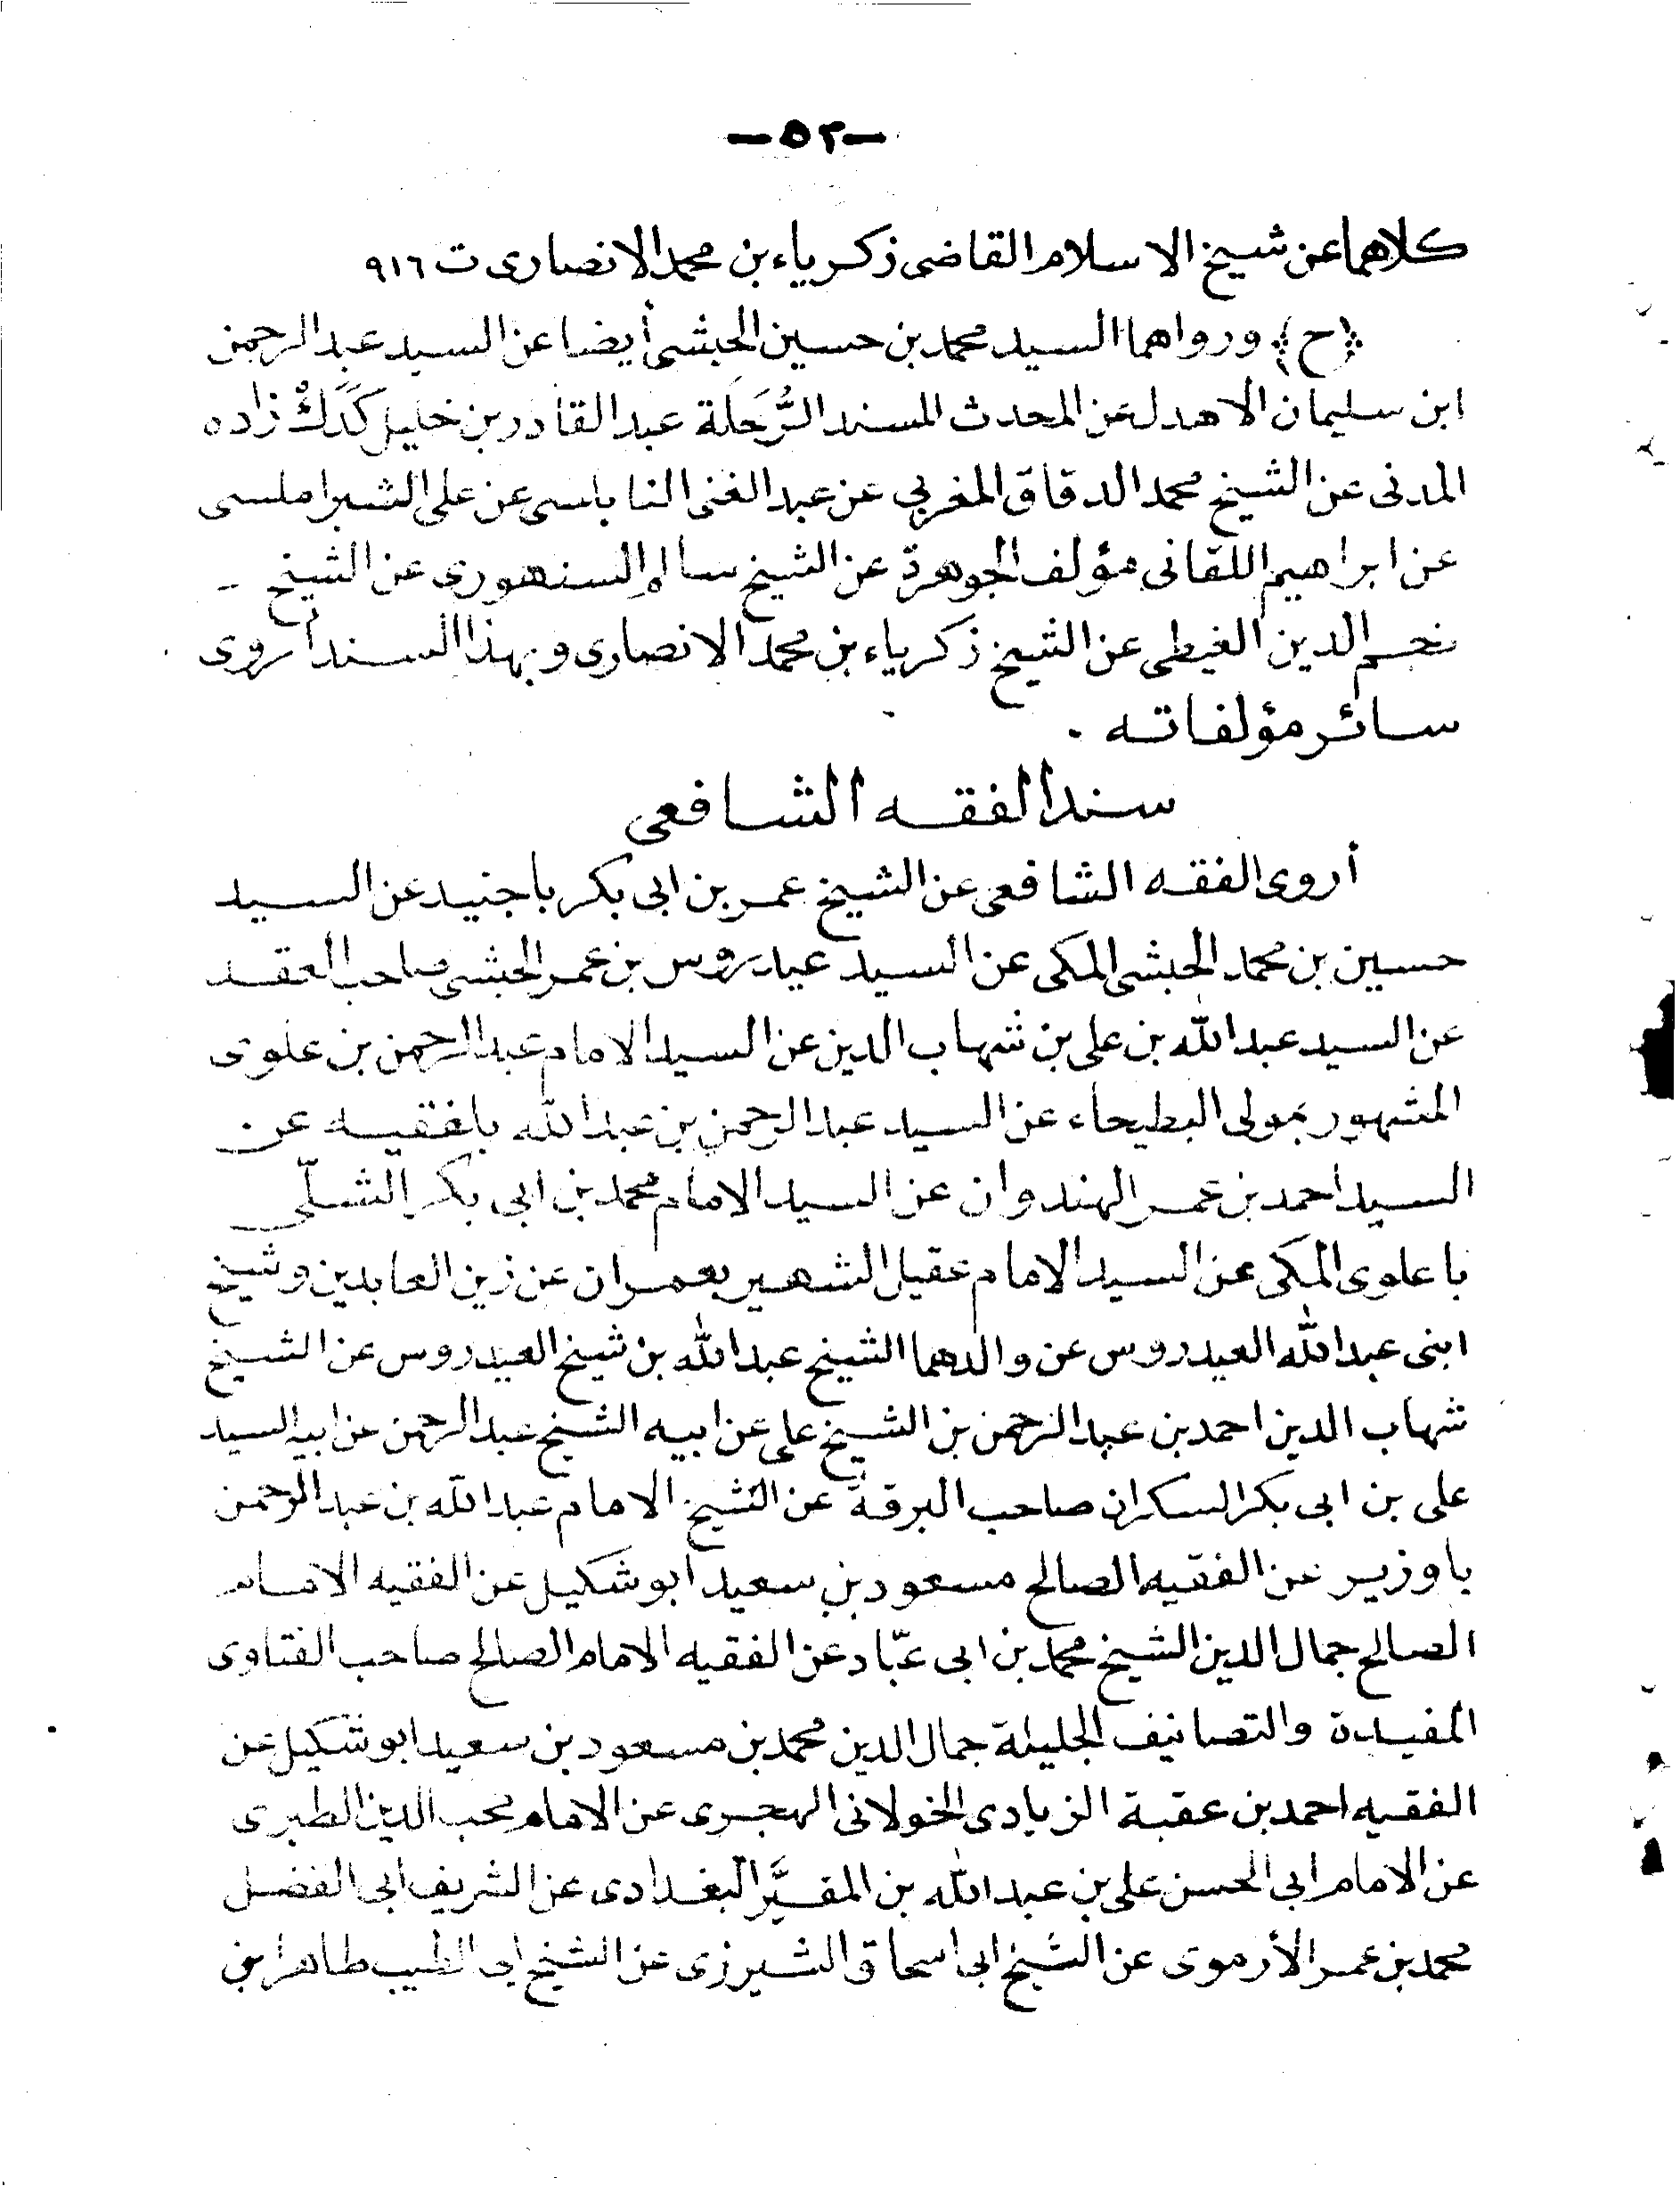 -٥٢-
كلاهما عن شيخ الاسلام القاضى زكرياء بن محمد الانصارى ت ٩١٦
(ح) ورواهما السيد محمد بن حسين الحبشى أيضا عن السيد عبد الرحمن
ابن سليمان الاهدل عن المحدث المسند الرُّحَلة عبد القادر بن خليل كَدَكْ زاده
المدنى عن الشيخ محمد الدقاق المغربي عن عبد الغنى النابلسى عن على الشبراملسى
عن ابراهيم اللقانى مؤلف الجوهرة عن الشيخ سالم السنهورى عن الشيخ -
نجم الدين الغيطى عن الشيخ زكرياء بن محمد الانصارى وبهذا السند أروى
سائر مؤلفاته .
سند الفقه الشافعى
أروى الفقه الشافعى عن الشيخ عمر بن ابى بكر باجنيد عن السيد
حسين بن محمد الحبشى المكى عن السيد عيدروس بن عمر الحبشى صاحب العقد
عن السيد عبد الله بن على بن شهاب الدين عن السيد الامام عبد الرحمن بن علوى
المشهور بمولى البطيحاء عن السيد عبد الرحمن بن عبد الله بلفقيه عن
السيد احمد بن عمر الهندوان عن السيد الامام محمد بن ابى بكر الشلّى
باعلوى المكى عن السيد الامام عقيل الشهير بعمران عن زين العابدين وشيخ
ابنى عبد الله العيدروس عن والدهما الشيخ عبد الله بن شيخ العيدروس عن الشيخ
شهاب الدين احمد بن عبد الرحمن بن الشيخ على عن ابيه الشيخ عبد الرحمن عن ابيه السيد
على بن ابى بكر السكران صاحب البرقة عن الشيخ الامام عبد الله بن عبد الرحمن
باوزير عن الفقيه الصالح مسعود بن سعيد ابو شكيل عن الفقيه الامام
الصالح جمال الدين الشيخ محمد بن ابى عبّاد عن الفقيه الامام الصالح صاحب الفتاوى
المفيدة والتصانيف الجليلة جمال الدين محمد بن مسعود بن سعيد ابو شكيل عن
الفقيه احمد بن عقبة الزيادى الخولانى الهجرى عن الامام محب الدين الطبرى
عن الامام ابى الحسن على بن عبد الله بن المقيَّر البغدادى عن الشريف ابى الفضل
محمد بن عمر الأرموى عن الشيخ ابى اسحاق الشيرزى عن الشيخ ابى الطيب طاهر بن